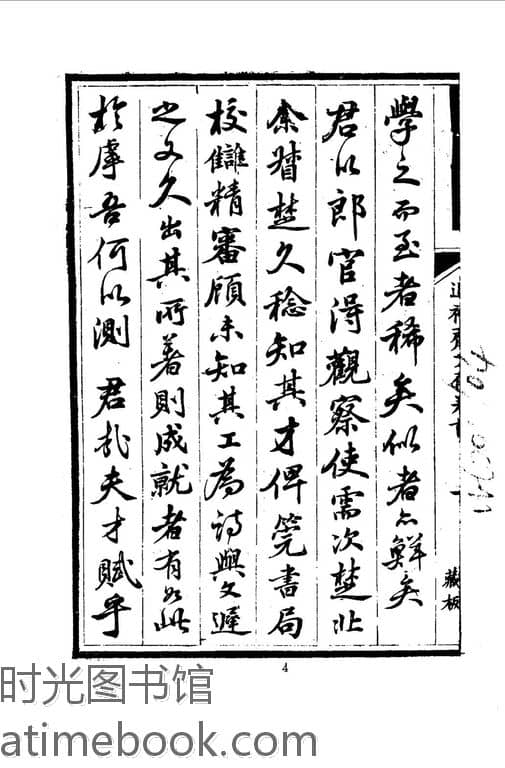 學之而至者稀矣似者亦鮮矣
君以郎官得觀察使需次楚北
余督楚久稔知其才俾筦書局
校讎精審顧未知其工為詩與文遲
之又久出其所著則成就者有如此
於虖吾何以測 君哉夫才賦乎
藏板
4
时光图书馆
atimebook.com